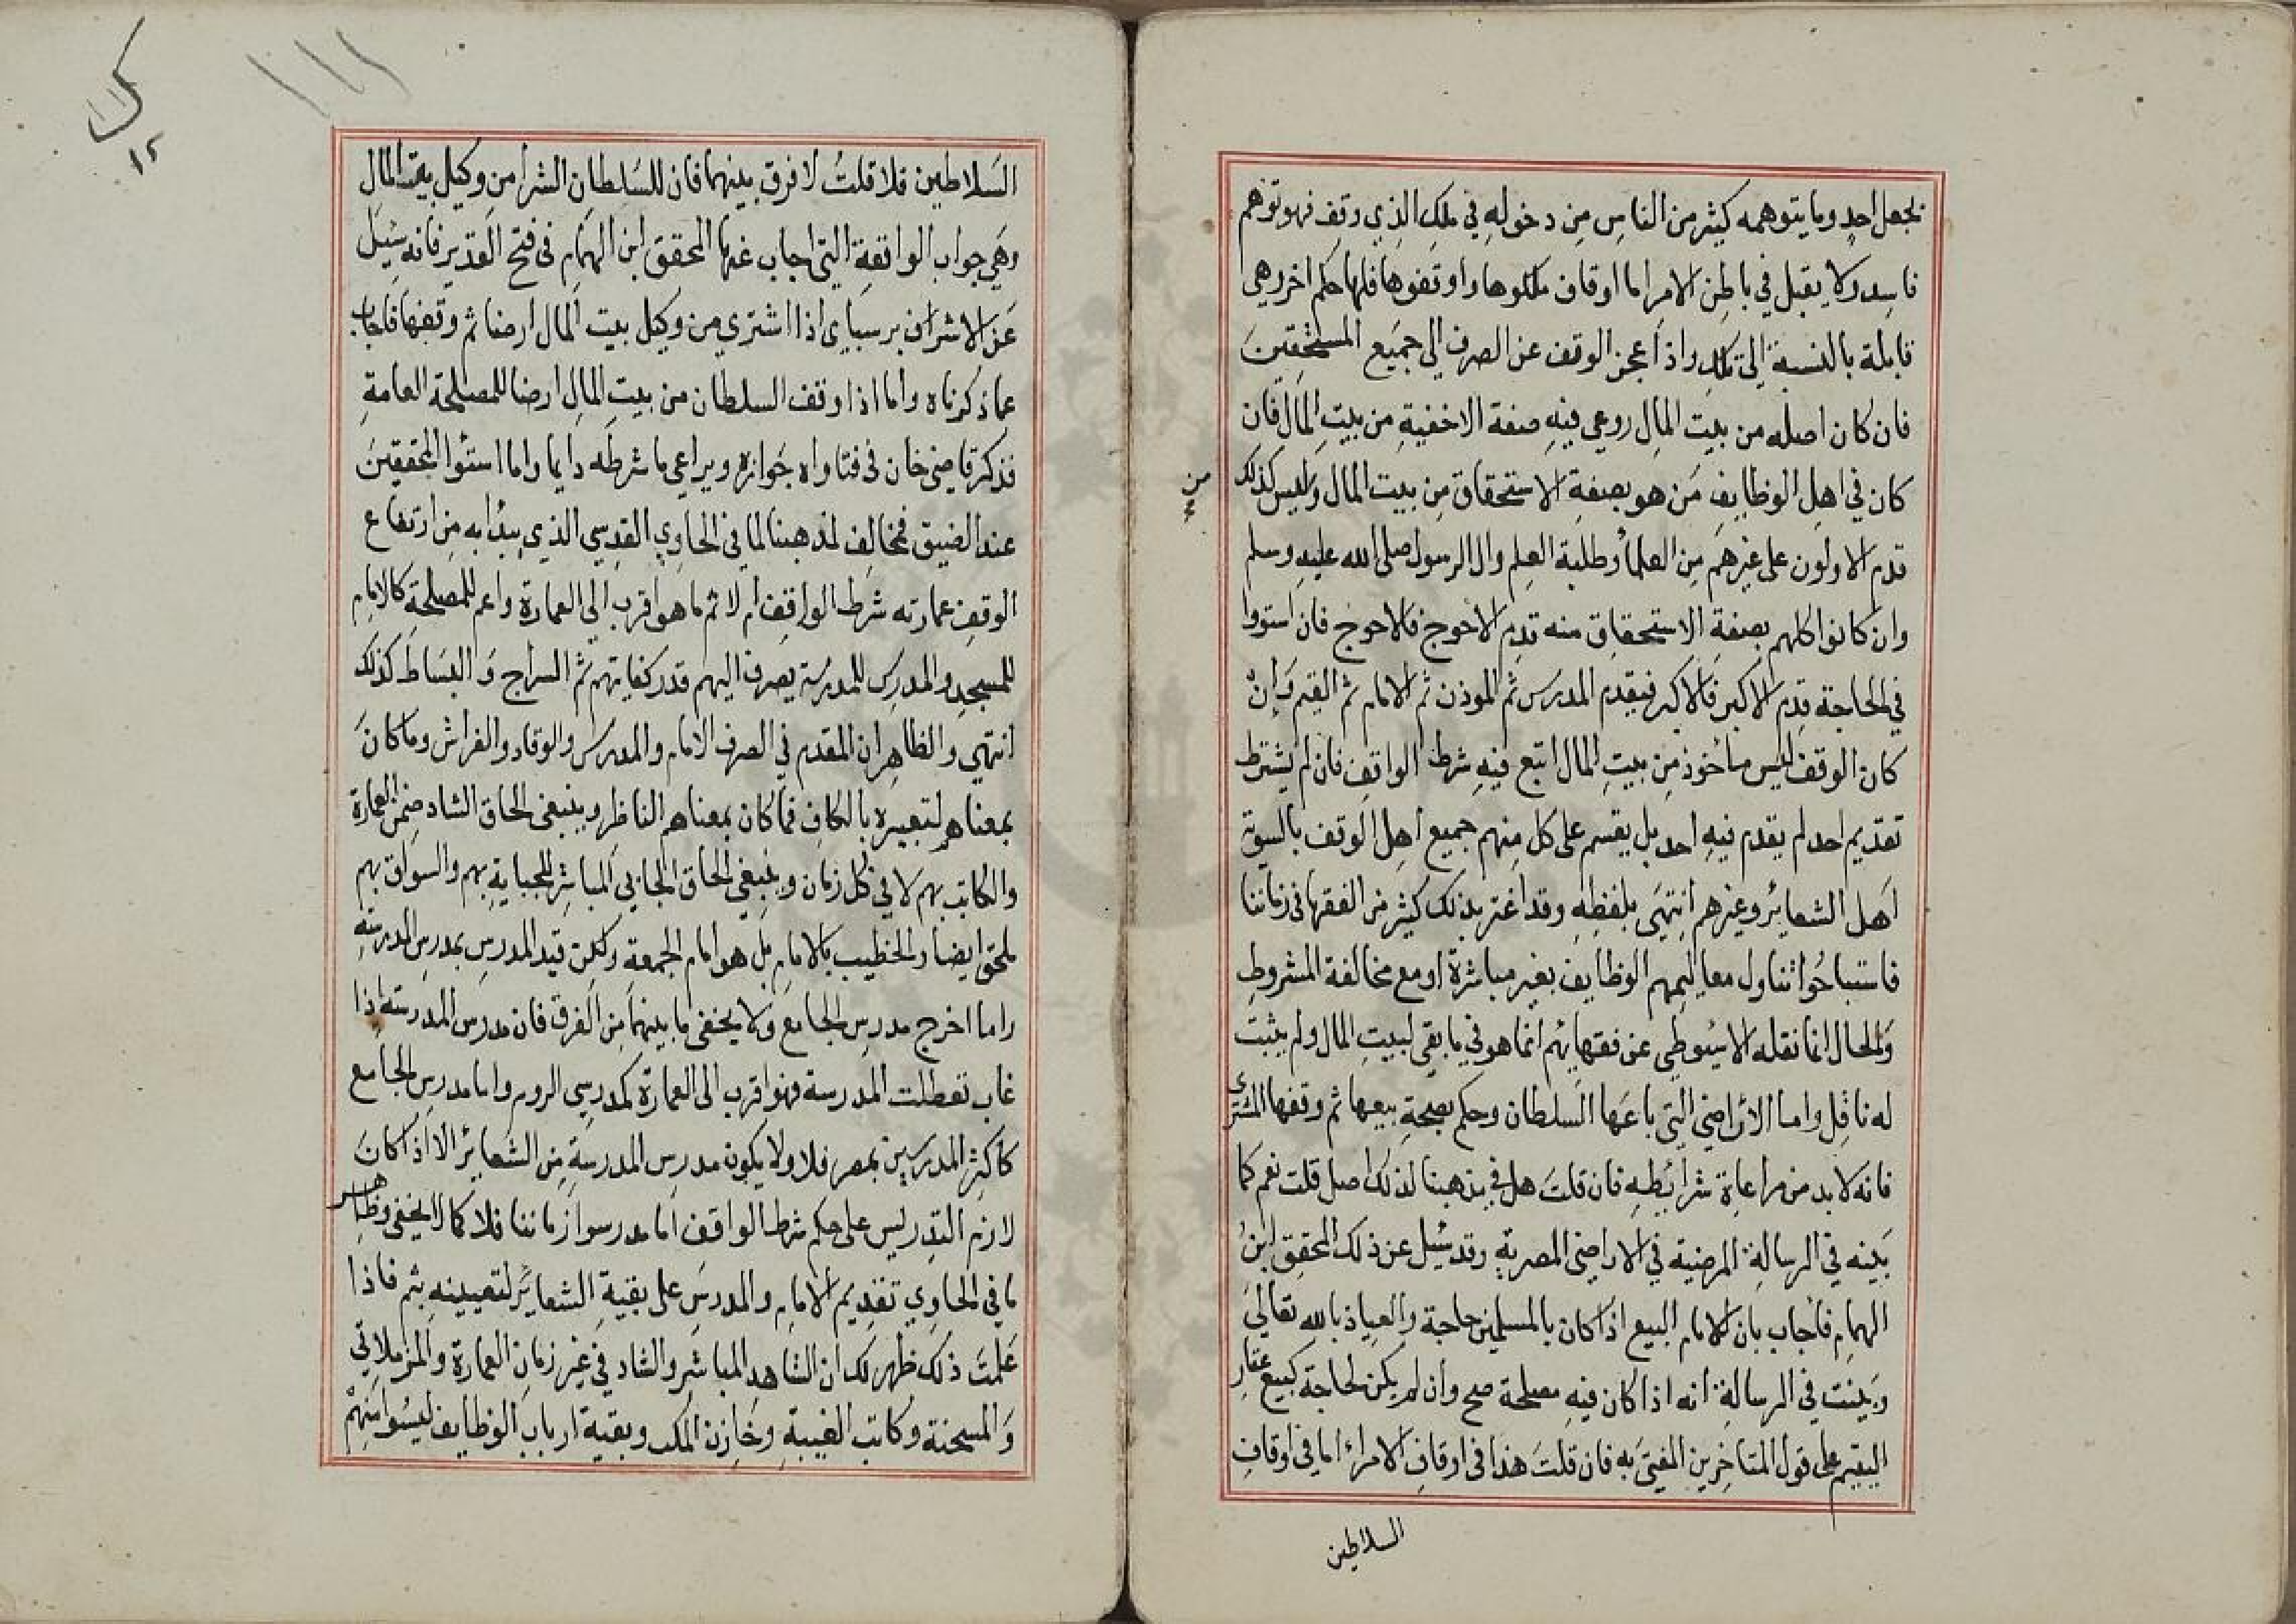 بجعل احد وما يتوهمه كثير من الناس من دخوله في ملك الذي وقف فهو توهم
فاسد ولا يقبل في باطن الامر اما اوقاف ملكوها واوقفوها فلها حكم اخر وهي
قابلة بالنسبة الى تلك واذا عجز الوقف عن الصرف الى جميع المستحقين
فان كان اصله من بيت المال روعي فيه صفة الاخفية من بيت المال فان
كان في اهل الوظايف من هو بصفة الاستحقاق من بيت المال وليس كذلك
من
قدم الاولون على غيرهم من العلماء وطلبة العلم وال الرسول صلى الله عليه وسلم
وان كانوا كلهم بصفة الاستحقاق منه قدم الاحوج فالاحوج فان استووا
في الحاجة قدم الاكبر فالاكبر فيقدم المدرس ثم الموذن ثم الامام ثم القيم وان
كان الوقف ليس ماخوذ من بيت المال اتبع فيه شرط الواقف فان لم يشترط
تقديم احد لم يقدم فيه احد بل يقسم على كل منهم جميع اهل الوقف بالسوية
اهل الشعائر وغيرهم انتهى بلفظه وقد اغتر بذلك كثير من الفقها في زماننا
فاستباحوا تناول معاليمهم الوظايف بغير مباشرة او مع مخالفة المشروط
والحال انما نقله الاسيوطي عن فقهايهم انما هو في ما بقي لبيت المال ولم يثبت
له ناقل واما الاراضي التي باعها السلطان وحكم بصحة بيعها ثم وقفها المشترى
فانه لا بد من مراعاة شرائطه فان قلت هل في مذهبنا لذلك اصل قلت نعم كما
بينه في الرسالة المرضية في الاراضي المصرية وقد سئل عن ذلك المحقق ابن
الهمام فاجاب بان للامام البيع اذا كان بالمسلمين حاجة والعياذ بالله تعالى
وبينت في الرسالة انه اذا كان فيه مصلحة صح وان لم يكن لحاجة كبيع عقار
اليتيم على قول المتاخرين المفتى به فان قلت هذا في اوقاف الامراء اما في اوقاف
السلاطين
السلاطين فلا قلت لا فرق بينهما فان للسلطان الشرا من وكيل بيت المال
وهي جواب الواقعة التي اجاب عنها المحقق ابن الهمام في فتح القدير فانه سئل
عن الاشراف برسباي اذا اشترى من وكيل بيت المال ارضا ثم وقفها فاجاب
عما ذكرناه واما اذا وقف السلطان من بيت المال ارضا للمصلحة العامة
فذكر قاضى خان في فتاواه جوازه ويراعى ما شرطه دايما واما استوا المحققين
عند الضيق فمخالف لمذهبنا لما في الحاوي القدسي الذي يبدا به من ارتفاع
الوقف عمارته شرط الواقف ام لا ثم ما هو اقرب الى العمارة واعم للمصلحة كالامام
للمسجد والمدرس للمدرسة يصرف اليهم قدر كفايتهم ثم السراج والبساط كذلك
انتهي والظاهر ان المقدم في الصرف الامام والمدرس والوقاد والفراش وما كان
بمعناهم لتعبيره بالكاف فما كان بمعناهم الناظر وينبغي الحاق الشاد ضمن العمارة
والكاتب بهم لا في كل زمان وينبغي الحاق الجابي المباشر للجباية بهم والسواق بهم
ملحق ايضا والخطيب بالامام بل هو امام الجمعة ولكن قيد المدرس بمدرس المدرسة
واما اخرج مدرس الجامع ولا يخفى ما بينهما من الفرق فان مدرس المدرسة اذا
غاب تعطلت المدرسة فهو اقرب الى العمارة كمدرسي الروم واما مدرس الجامع
كاكثر المدرسين بمصر فلا ولا يكون مدرس المدرسة من الشعائر الا اذا كان
لازم التدريس على حكم شرط الواقف اما مدرسوا زماننا فلا كما لا يخفى وظاهر
ما في الحاوي تقديم الامام والمدرس على بقية الشعائر لتعبيره بثم فاذا
علمت ذلك ظهر لك ان الشاهد المباشر والشاد في غير زمن العمارة والمزملاتي
والمسحنة وكاتب الغيبة وخازن الكتب وبقية ارباب الوظايف ليسوا منهم